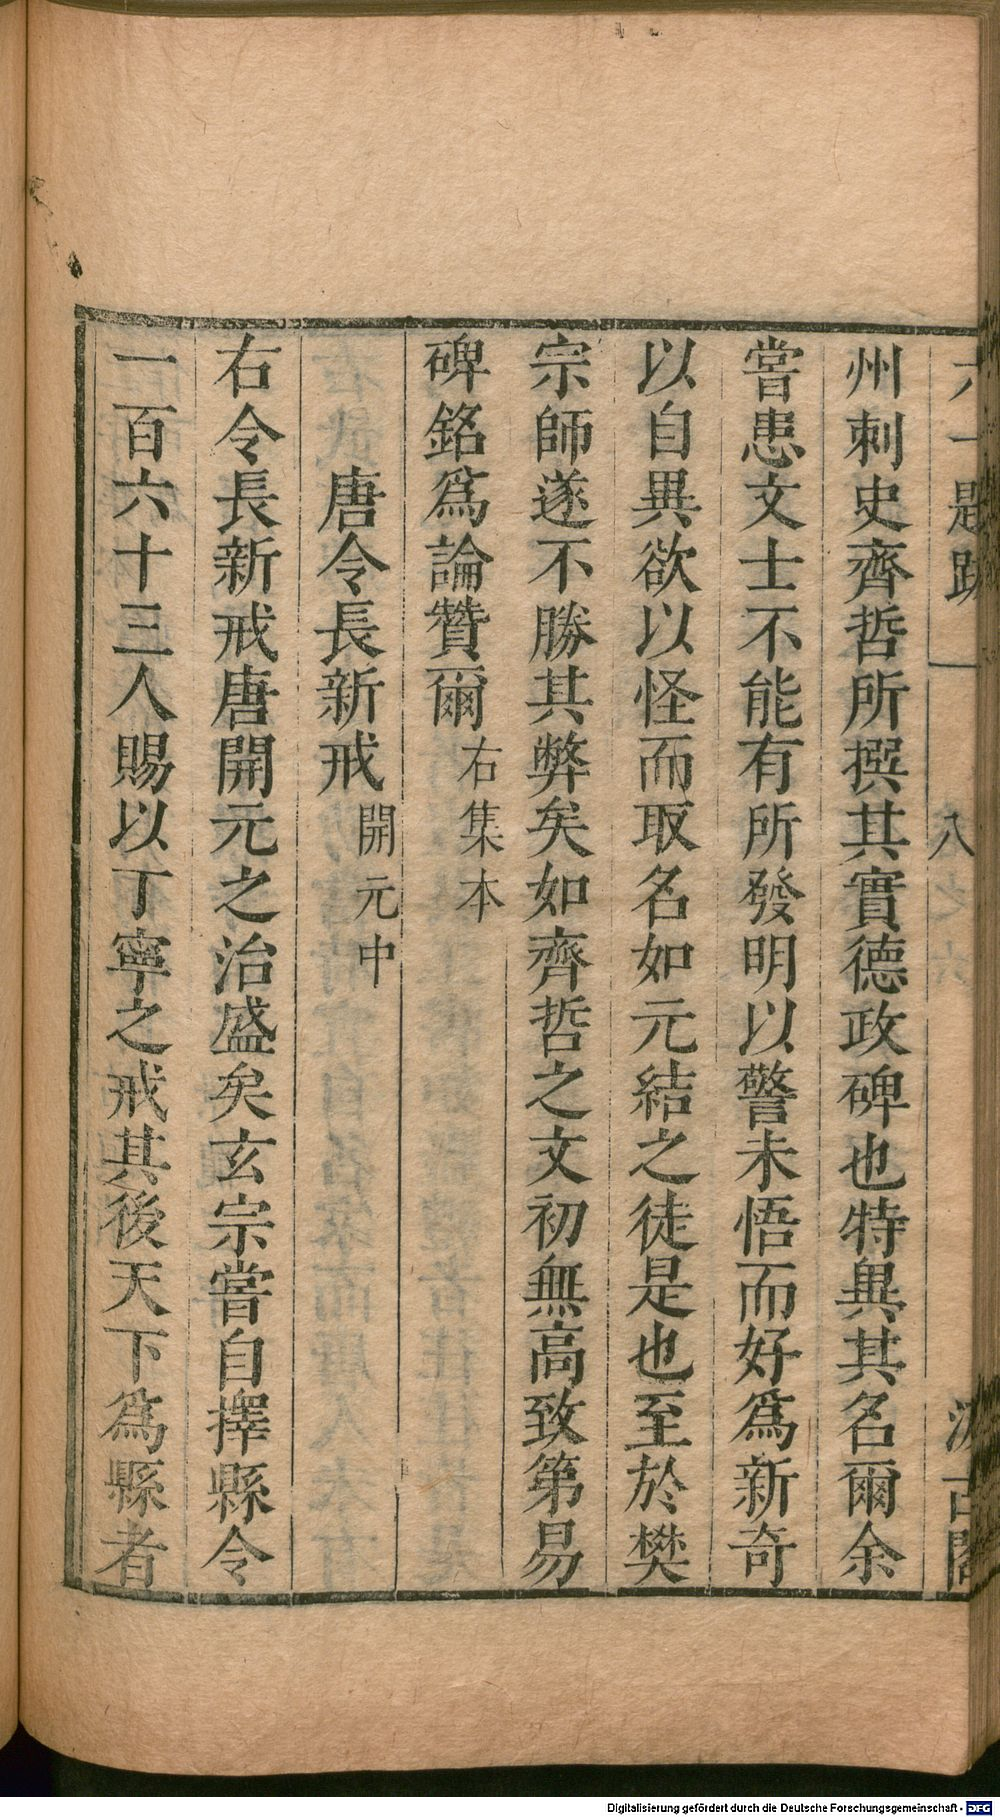 六一題跋
卷之六
八
汲古閣
州刺史齊哲所撰其實德政碑也特異其名爾余
嘗患文士不能有所發明以警未悟而好爲新奇
以自異欲以怪而取名如元結之徒是也至於樊
宗師遂不勝其弊矣如齊哲之文初無高致第易
碑銘爲論贊爾右集本
唐令長新戒開元中
右令長新戒唐開元之治盛矣玄宗嘗自擇縣令
一百六十三人賜以丁寧之戒其後天下爲縣者
Digitalisierung gefördert durch die Deutsche Forschungsgemeinschaft - DFG